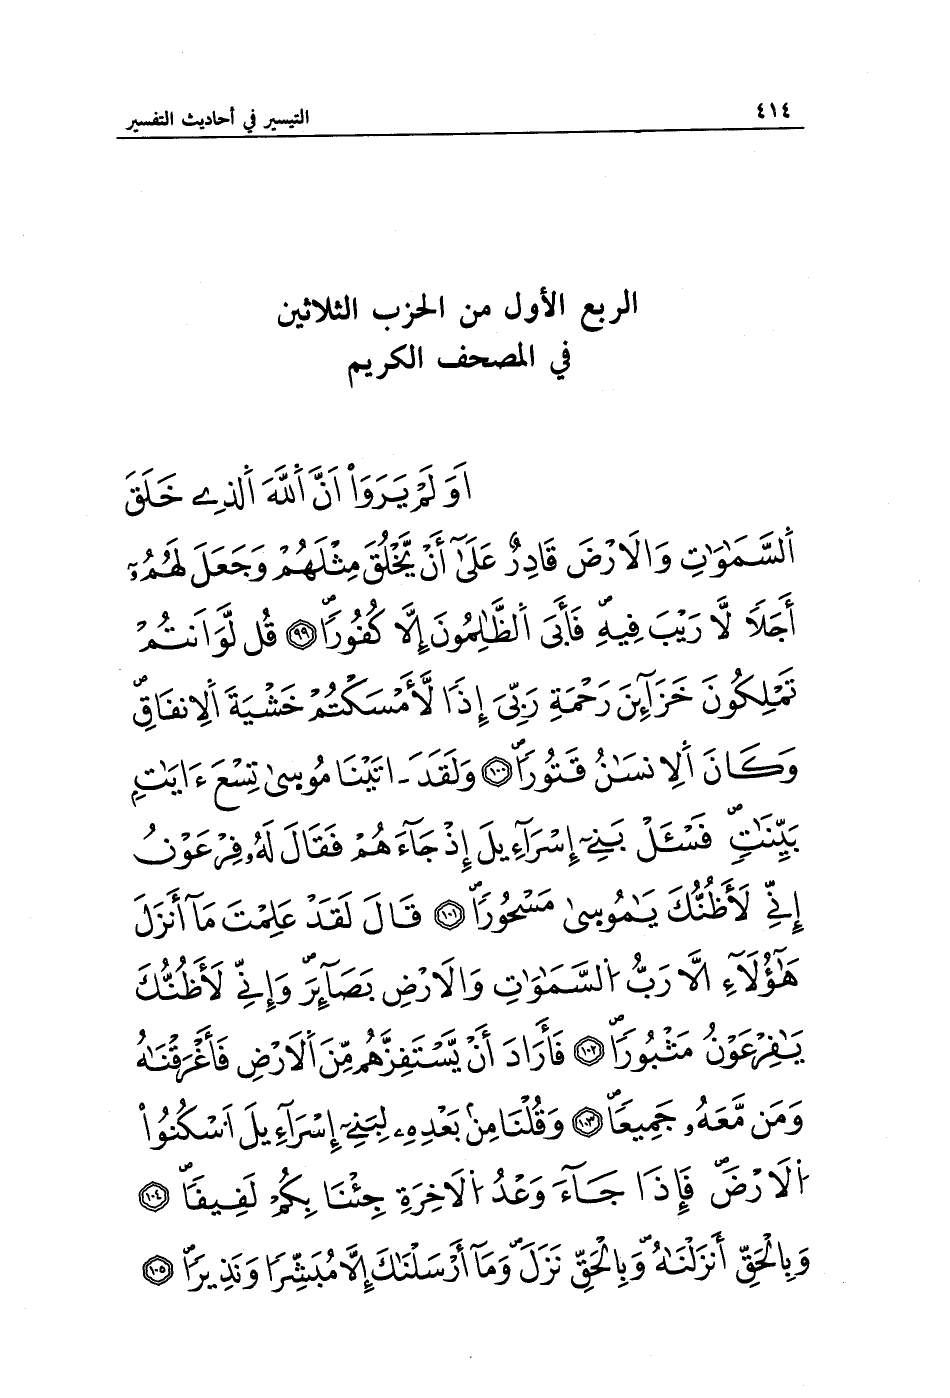 ٤١٤
التيسير في أحاديث التفسير
الربع الأول من الحزب الثلاثين
في المصحف الكريم
اَوَلَمْ يَرَوَاْ اَنَّ اَ۬للَّهَ اَ۬لذِے خَلَقَ
اَ۬لسَّمَٰوَٰتِ وَالَارْضَ قَادِرٌ عَلَىٰٓ أَنْ يَّخْلُقَ مِثْلَهُمْ وَجَعَلَ لَهُمُۥٓ
أَجَلاَ لَّا رَيْبَ فِيهِۖ فَأَبَى اَ۬لظَّٰلِمُونَ إِلَّا كُفُوراٗۖ ۝٩٩ قُل لَّوَ اَنتُمْ
تَمْلِكُونَ خَزَآئِنَ رَحْمَةِ رَبِّيَ إِذاَ لَّأَمْسَكْتُمْ خَشْيَةَ اَ۬لِانفَاقِۖ
وَكَانَ اَ۬لِانسَٰنُ قَتُوراٗۖ ۝١٠٠ وَلَقَدَ ـ اتَيْنَا مُوس۪ىٰ تِسْعَ ءَايَٰتِۭ
بَيِّنَٰتٖۖ فَسْـَٔلْ بَنِےٓ إِسْرَآءِيلَ إِذْ جَآءَهُمْ فَقَالَ لَهُۥ فِرْعَوْنُ
إِنِّے لَأَظُنُّكَ يَٰمُوس۪ىٰ مَسْحُوراٗۖ ۝١٠١ قَالَ لَقَدْ عَلِمْتَ مَآ أَنزَلَ
هَٰٓؤُلَآءِ الَّا رَبُّ اُ۬لسَّمَٰوَٰتِ وَالَارْضِ بَصَآئِرَۖ وَإِنِّے لَأَظُنُّكَ
يَٰفِرْعَوْنُ مَثْبُوراٗۖ ۝١٠٢ فَأَرَادَ أَنْ يَّسْتَفِزَّهُم مِّنَ اَ۬لَارْضِ فَأَغْرَقْنَٰهُ
وَمَن مَّعَهُۥ جَمِيعاٗۖ ۝١٠٣ وَقُلْنَا مِنۢ بَعْدِهِۦ لِبَنِےٓ إِسْرَآءِيلَ اَ۟سْكُنُواْ
اُ۬لَارْضَۖ فَإِذَا جَآءَ وَعْدُ اُ۬لَاخِرَةِ جِئْنَا بِكُمْ لَفِيفاٗۖ ۝١٠٤
وَبِالْحَقِّ أَنزَلْنَٰهُۖ وَبِالْحَقِّ نَزَلَۖ وَمَآ أَرْسَلْنَٰكَ إِلَّا مُبَشِّراٗ وَنَذِيراٗۖ ۝١٠٥